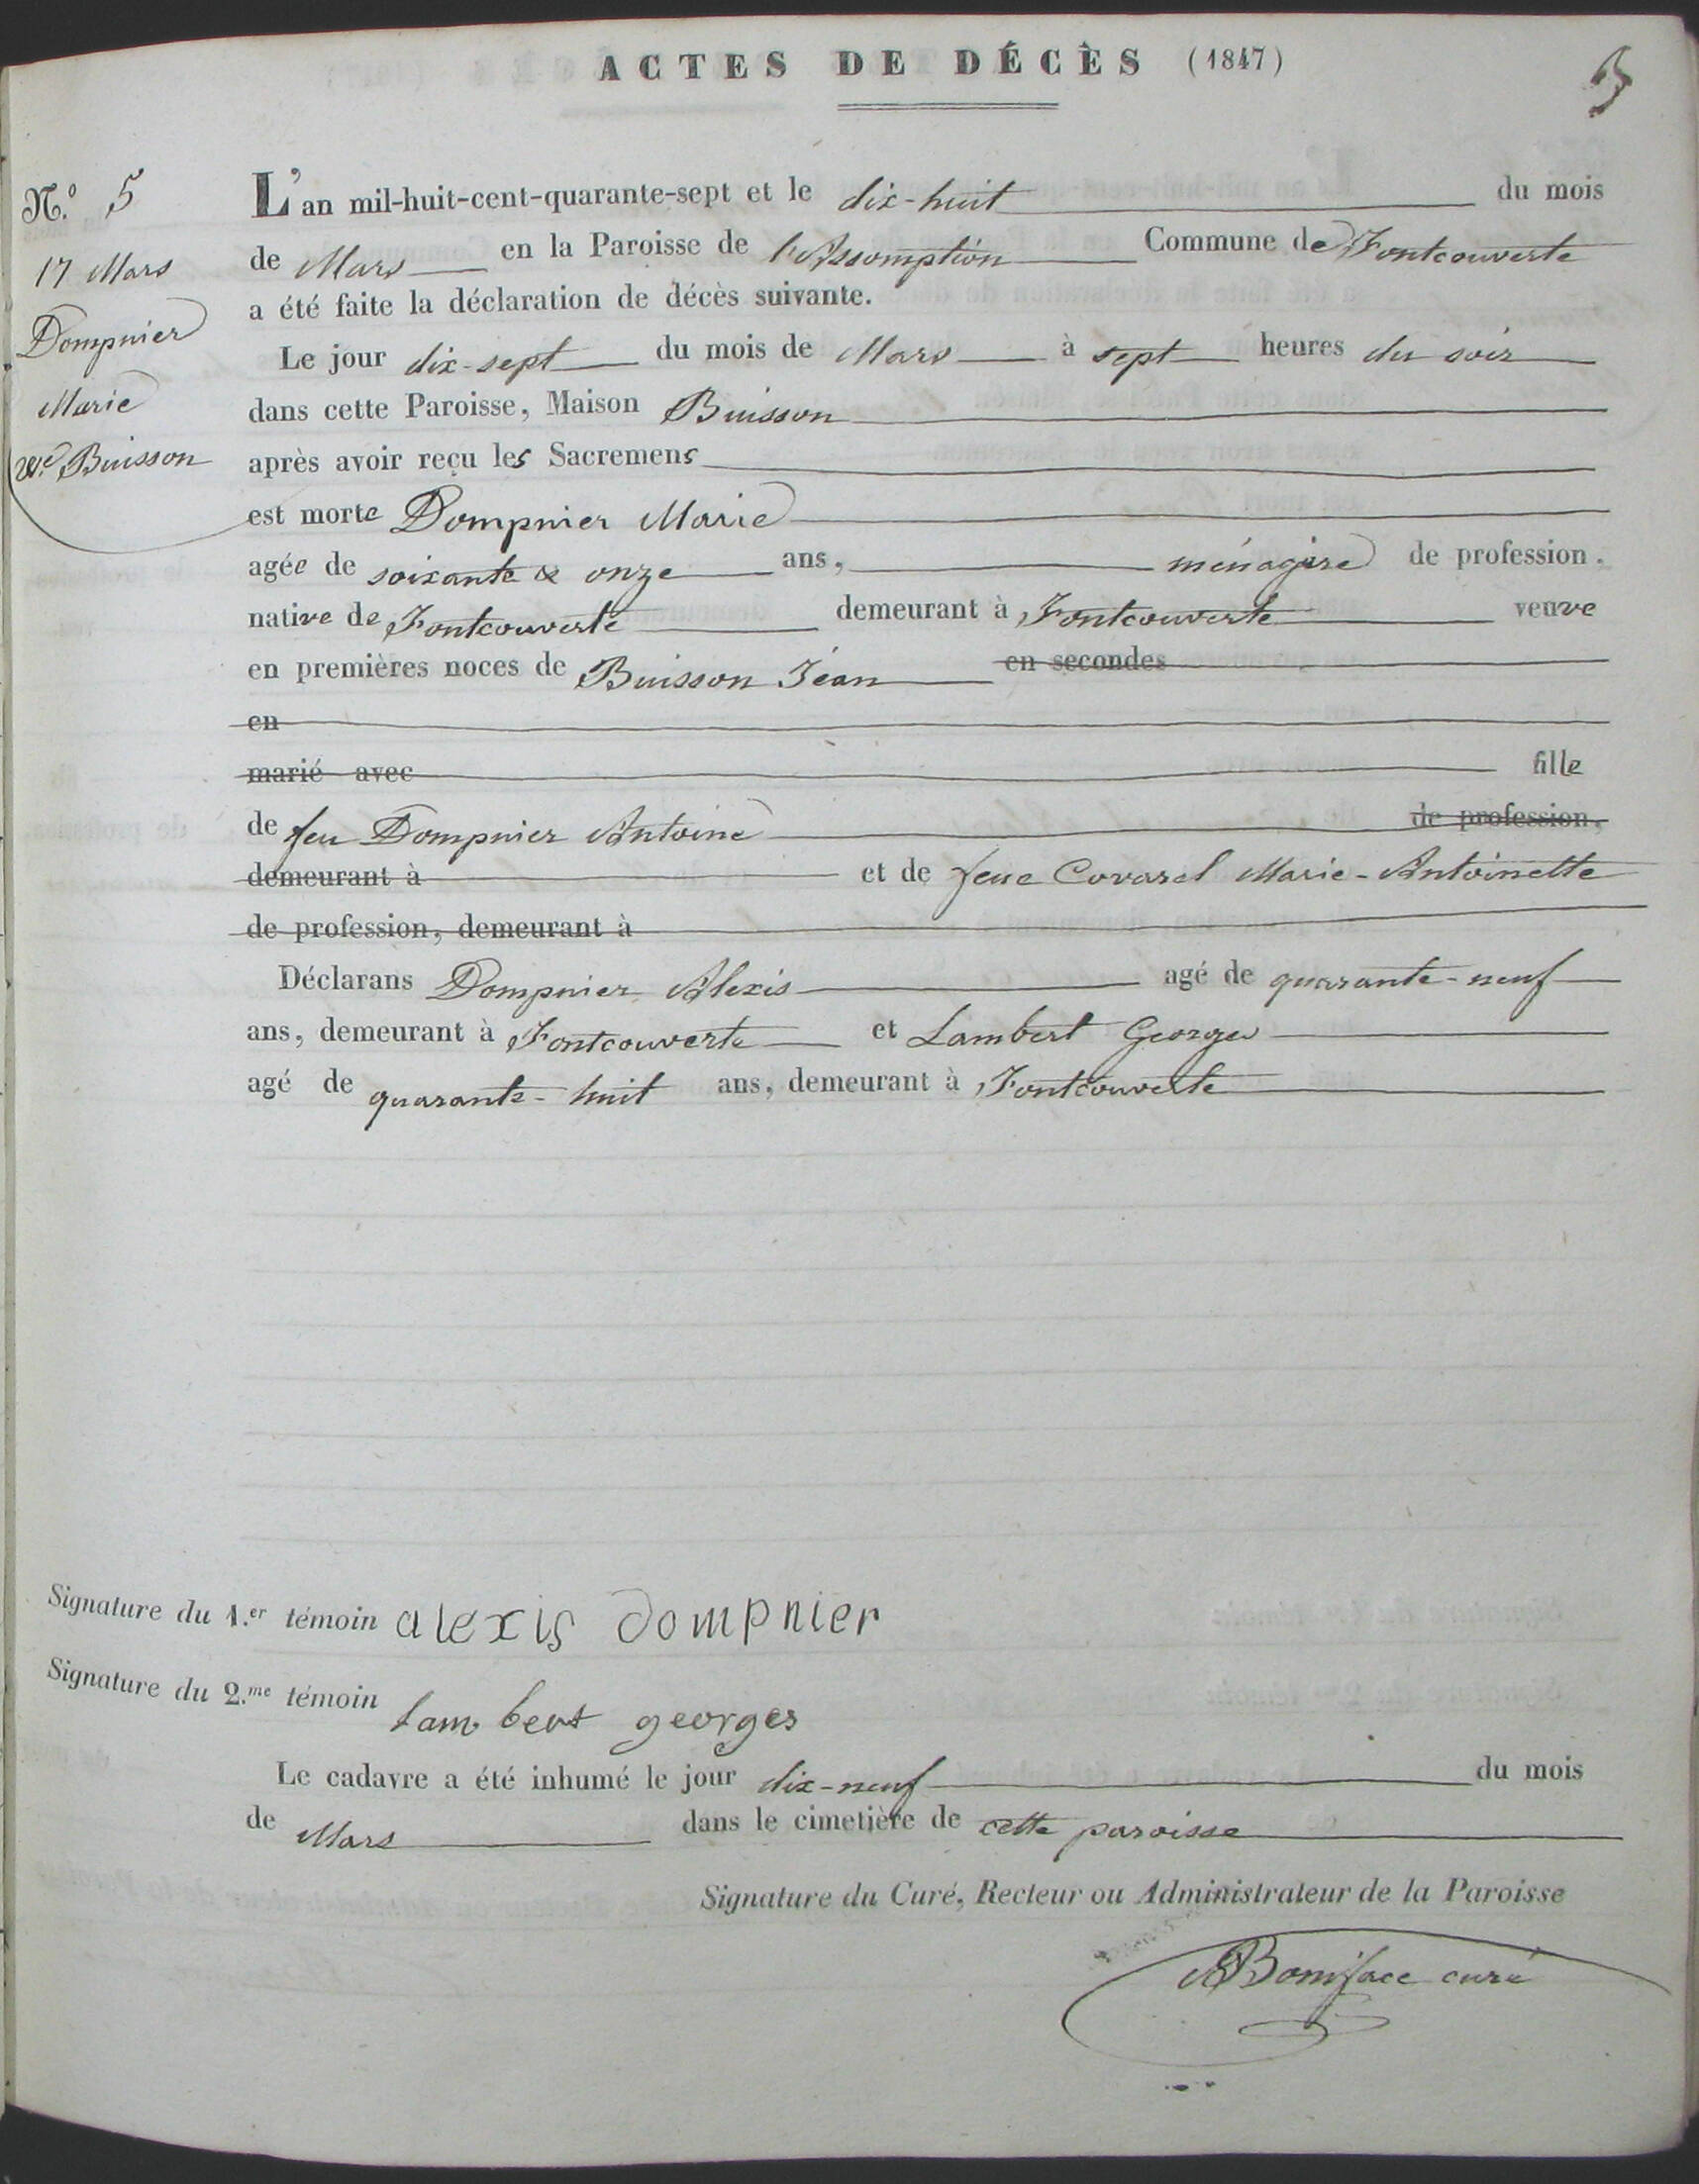 ACTES DE DÉCÈS (1847)
5
N.º 5
17 Mars
Dompnier
Marie
vve Buisson
L'an mil-huit-cent-quarante-sept et le dix-huit du mois
de Mars en la Paroisse de l'Assomption Commune de Fontcouverte
a été faite la déclaration de décès suivante.
Le jour dix-sept du mois de Mars à sept heures du soir
dans cette Paroisse, Maison Buisson
après avoir reçu les Sacremens
est morte Dompnier Marie
agée de soixante & onze ans, ménagère de profession.
native de Fontcouverte demeurant à Fontcouverte veuve
en premières noces de Buisson Jean en secondes
en
marié avec fille
de feu Dompnier Antoine de profession,
demeurant à et de feue Covarel Marie-Antoinette
de profession, demeurant à
Déclarans Dompnier Alexis agé de quarante-neuf
ans, demeurant à Fontcouverte et Lambert Georges
agé de quarante-huit ans, demeurant à Fontcouverte
Signature du 1.er témoin alexis dompnier
Signature du 2.me témoin lambert georges
Le cadavre a été inhumé le jour dix-neuf du mois
de Mars dans le cimetière de cette paroisse
Signature du Curé, Recteur ou Administrateur de la Paroisse
Boniface curé